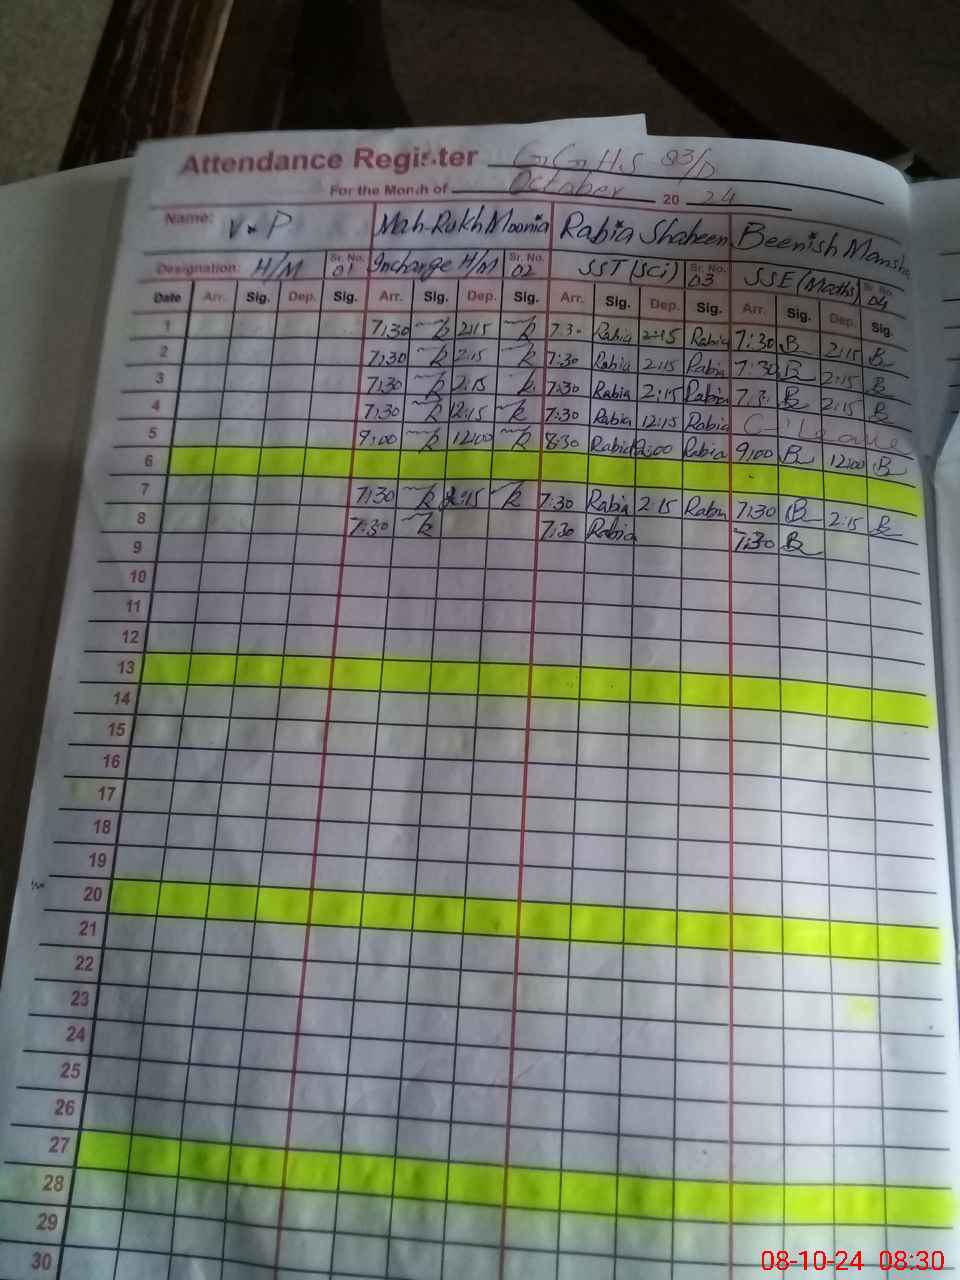 Attendance Register G.G.H.S 83/D
For the Month of October 20 24
Name: V.P Mah-Rukh Moonia Rabia Shaheen Beenish Mansha
Designation: H/M Sr. No. 01 Incharge H/M Sr. No. 02 SST (Sci) Sr. No. 03 SSE (Maths) Sr. No. 04
Date Arr. Sig. Dep. Sig. Arr. Sig. Dep. Sig. Arr. Sig. Dep. Sig. Arr. Sig. Dep. Sig.
1 7:30 2:15 7:30 Rabia 2:15 Rabia 7:30 B 2:15 B
2 7:30 2:15 7:30 Rabia 2:15 Rabia 7:30 B 2:15 B
3 7:30 2:15 7:30 Rabia 2:15 Rabia 7:30 B 2:15 B
4 7:30 12:15 7:30 Rabia 12:15 Rabia C-Leave
5 9:00 12:00 8:30 Rabia 12:00 Rabia 9:00 B 12:00 B
6
7 7:30 2:15 7:30 Rabia 2:15 Rabia 7:30 B 2:15 B
8 7:30 7:30 Rabia 7:30 B
9
10
11
12
13
14
15
16
17
18
19
20
21
22
23
24
25
26
27
28
29
30
08-10-24 08:30